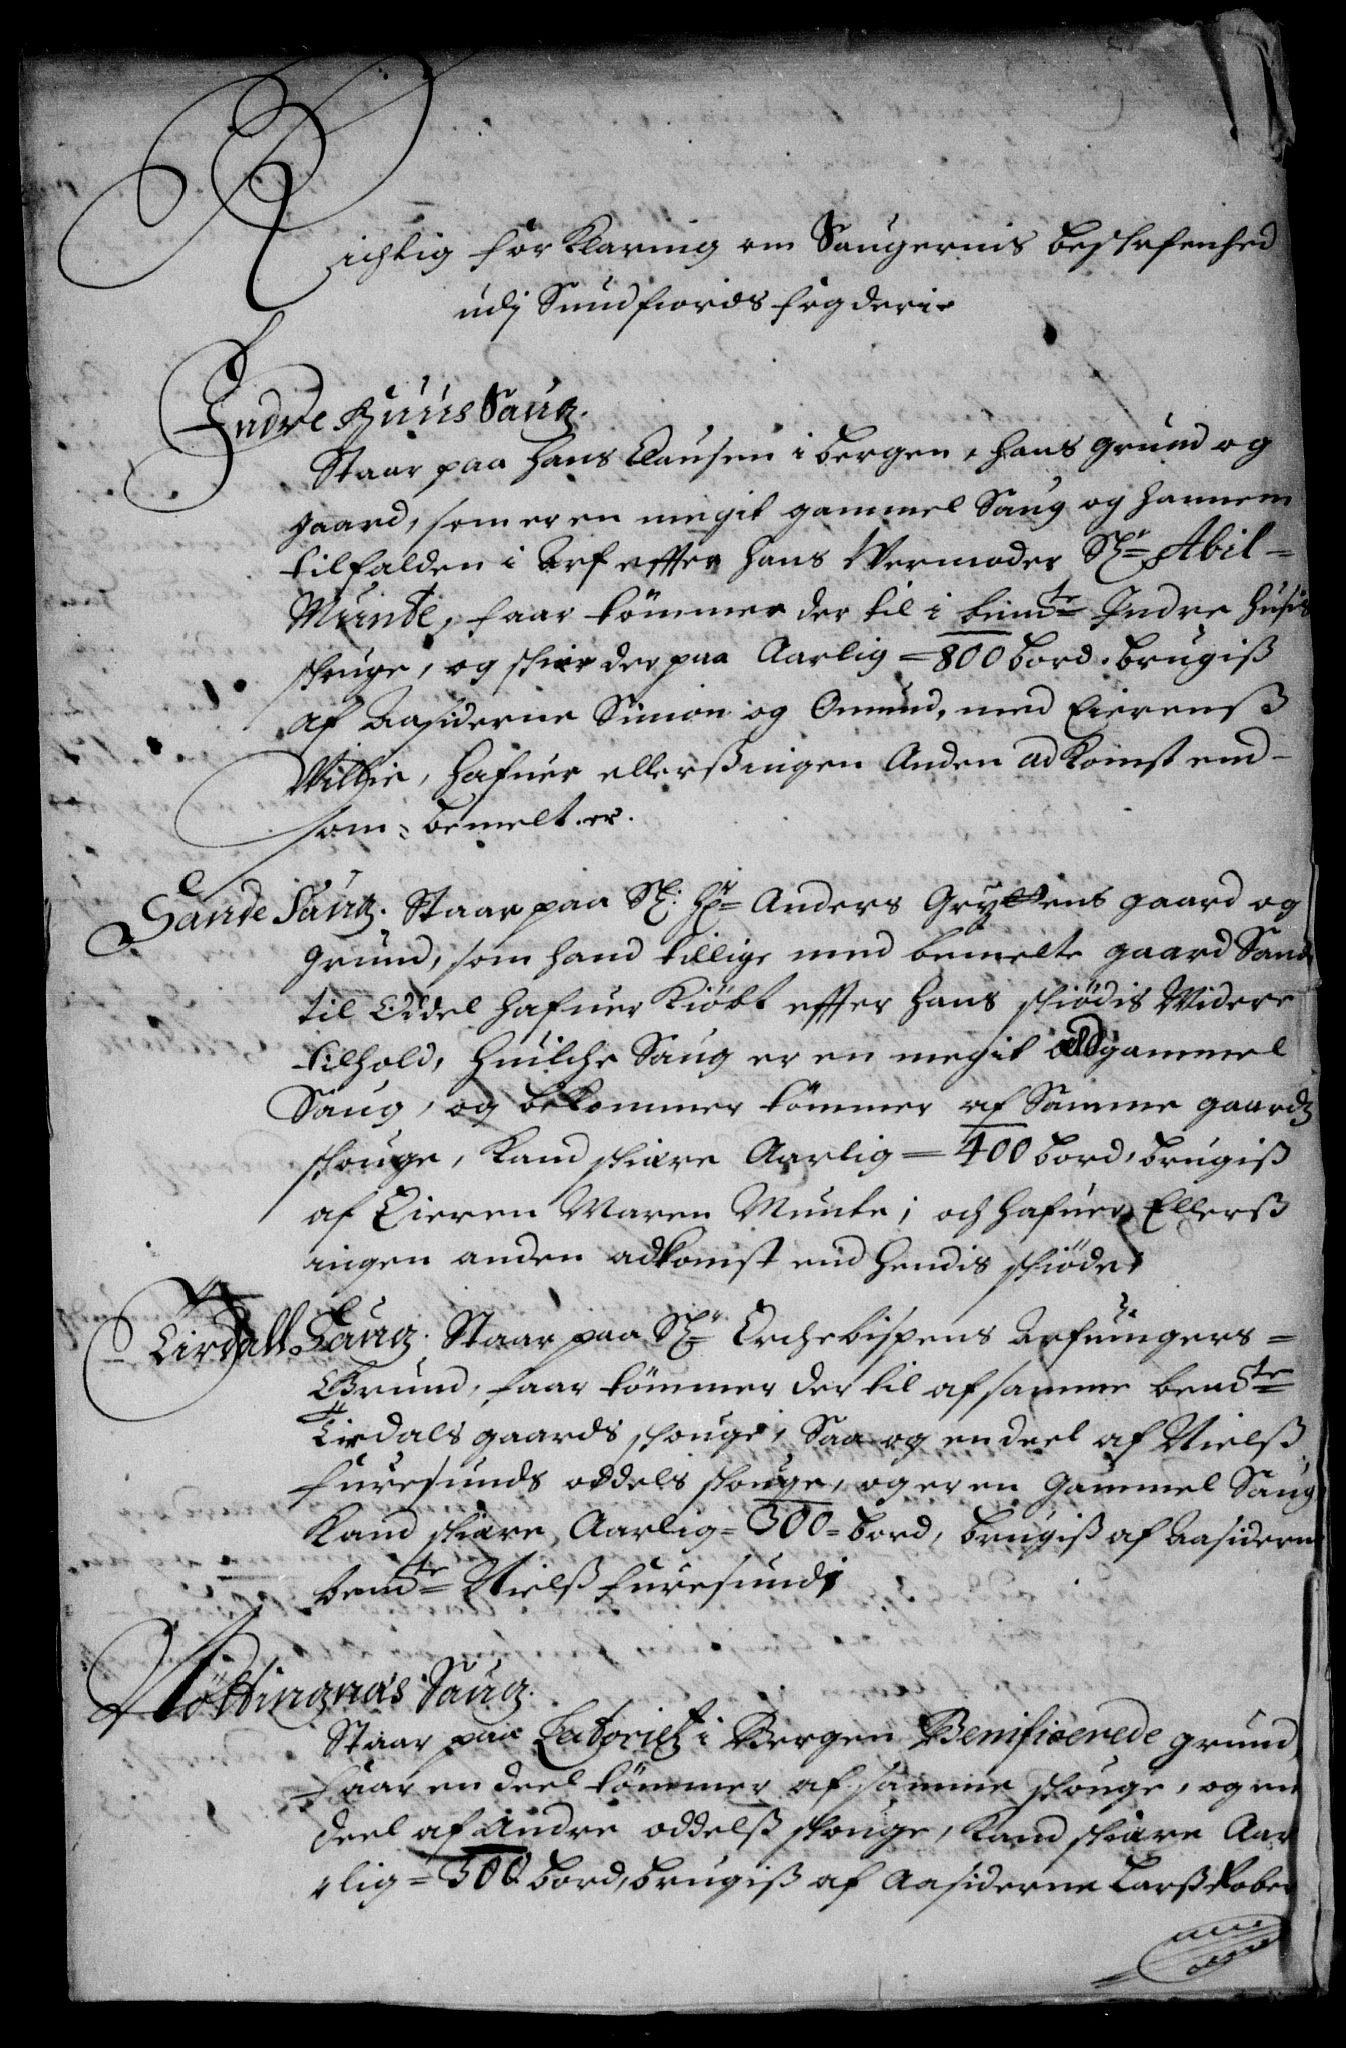 Richtig forklaring om Saugernis beskafenhed
udj Sundfiords fogderie
Indre Huus Saug.
Staar paa Hans Clausen i bergen, hans grund og
gaard, som er en megit gammel Saug og hannem
tilfalden i Arf effter hans Wermoder Sl: Abil
Munte, faar tömmer der til i bemte Indre Husis
skouge, og skier der paa Aarlig = 800 bord. brugiß
af Aasiderne Simon og Omund, med Eierenß
Villie, hafuer ellerß ingen Anden adkomst end
som bemelt er.
Sande Saug. Staar paa Sl: Hr: Anders Gryttens gaard og
Grund, som hand tillige med bemelte gaard Sande
til Oddel hafuer kiöbt effter hans skiödis Widere
tilhold, huilche Saug er en megit old gammel
Saug, og bekommer tömmer af Samme gaardz
skouge, kand skiære Aarlig = 400 bord, brugiß
af Eieren Maren Munte, och hafuer Ellerß
ingen anden adkomst end hendis skiöde.
Lirdals Saug. Staar paa Sl: Erchebispens Arfuingers =
Grund, faar tömmer der til af samme bemte
Lirdals gaards skouge, Saa og en deel af Nielß
furesunds oddels skouge, og er en Gammel Saug
Kand skiære Aarlig = 300 = bord, brugiß af Aasideren
bemte Nielß furesund.
Saug.
Staar paa i Bergen Benificerede grund,
faar en deel tömmer af samme skouge, og en
deel af Andre oddelß skouge, kand skiære Aar
lig = 300 bord, brugiß af Aasiderne Larß